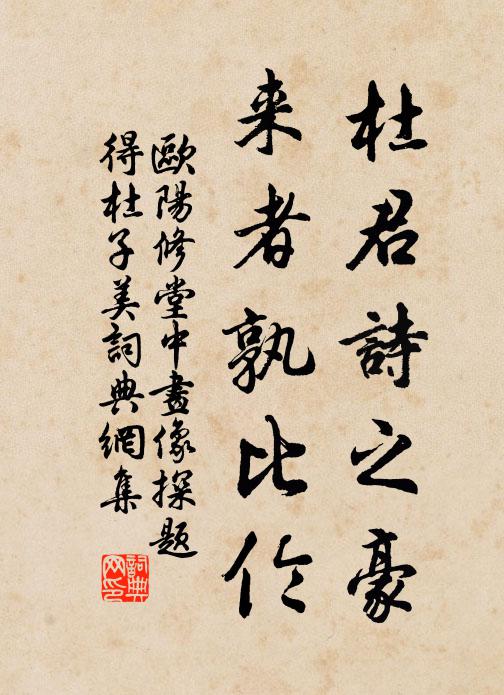 杜君詩之豪
来者孰比伦
歐陽修堂中畫像探题
得杜子美詞典網集
詞典
网印